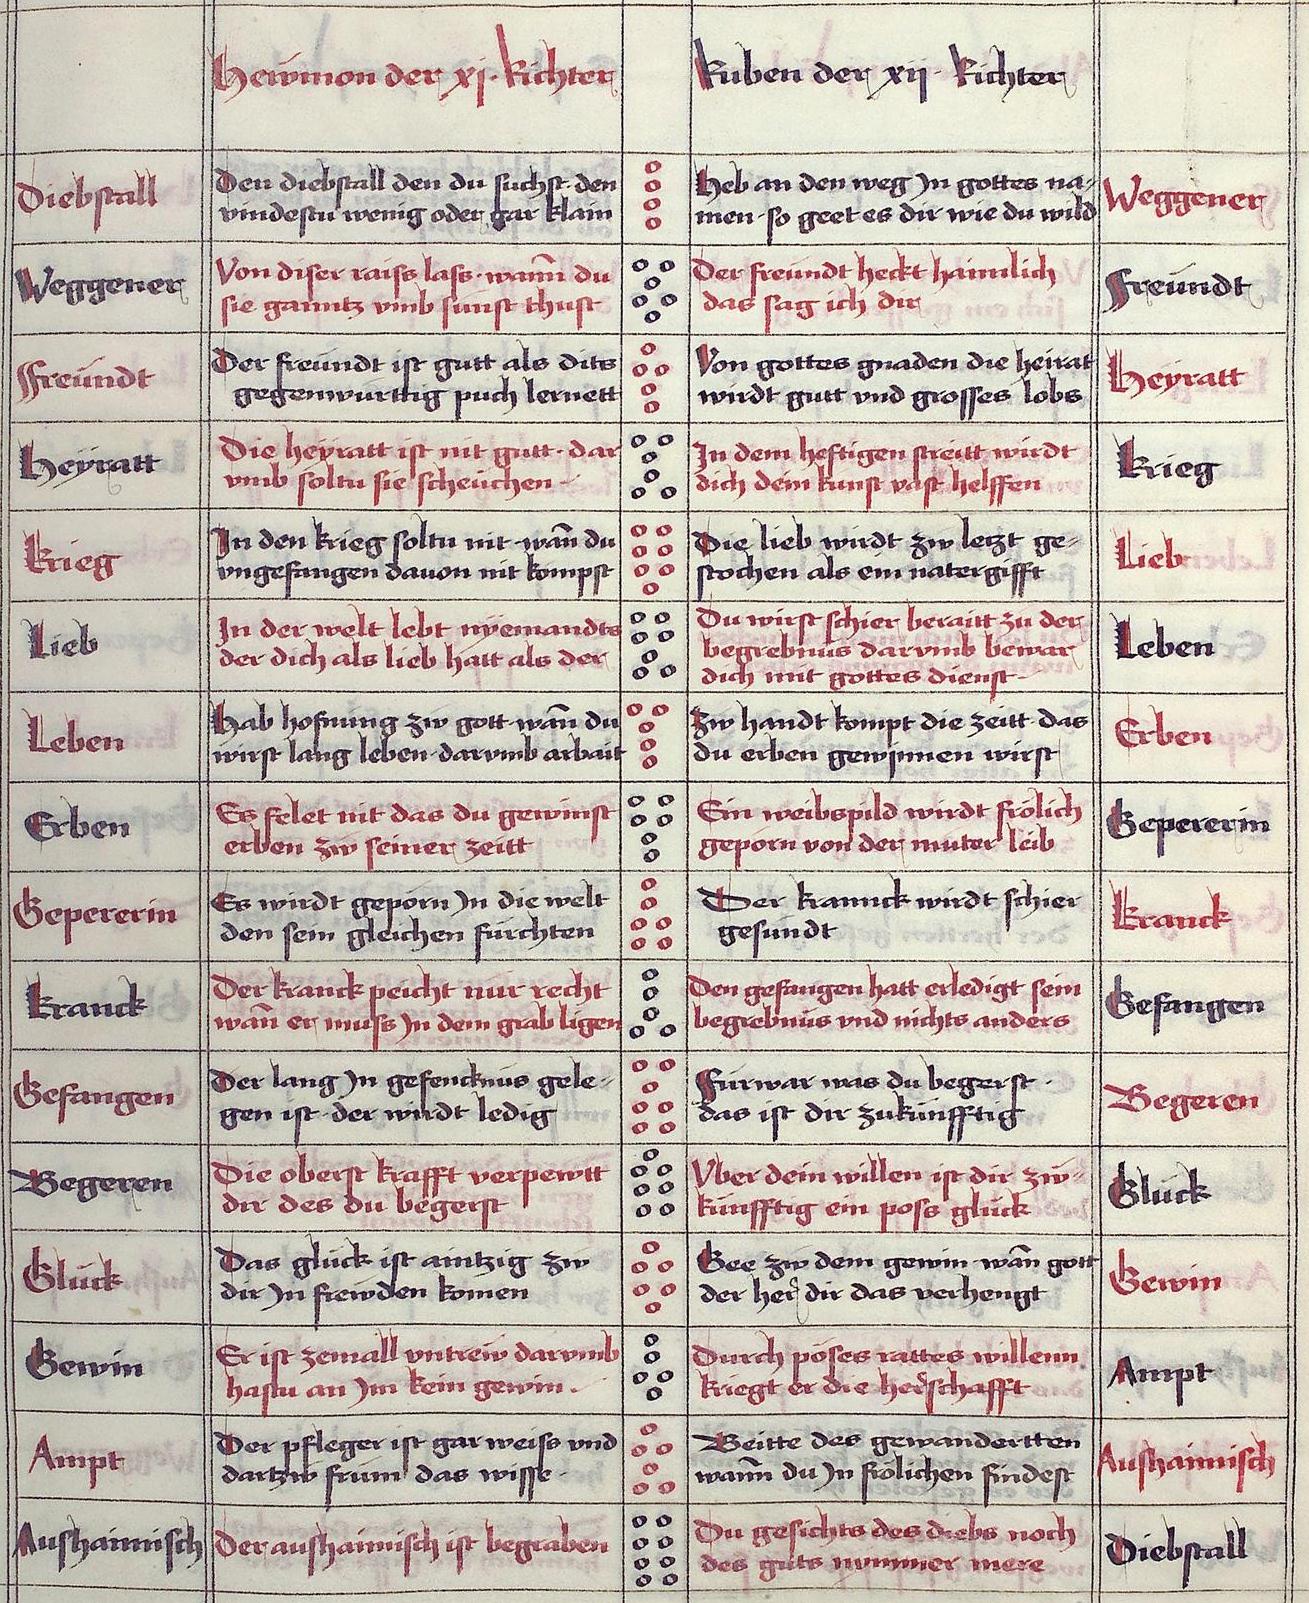 Hewmon der xj. Richter
Ruben der xij. Richter
Diebstall
Den diebstall den du suchst. den
vindestu wenig oder gar klain
Heb an den weg Jn gottes na-
men. so geet es dir wie du wild
Weggener
Weggener
Von diser raiss lass. wann du
sie ganntz vmb sunst thust
Der freundt heckt haimlich
das sag ich dir
Freundt
Freundt
Der freundt ist gutt als dits
gegenwurttig puch lernett
Von gottes gnaden die heirat
wirdt gutt vnd grosses lobs
Heyratt
Heyratt
Die heyratt ist nit gutt. dar
vmb soltu sie scheuchen
In dem heftigen streitt wirdt
dich dein kunst vast helffen
Krieg
Krieg
In den krieg soltu nit. wañ du
vngefangen dauon nit kompst
Die lieb wirdt zw letzt ge-
stochen als ein natergifft
Lieb
Lieb
In der welt lebt nyemandts
der dich als lieb hatt als der
Du wirst schier beraitt zu der
begrebnus darvmb bewar
dich mit gottes dienst
Leben
Leben
Hab hofnung zw gott. wañ du
wirst lang leben. darvmb arbait
Zw handt kompt die zeitt. das
du erben gewinnen wirst
Erben
Erben
Es felet nit das du gewinst
erben zw seiner zeitt
Ein weibspild wirdt frölich
geporn von der muter leib
Gepererin
Gepererin
Es wirdt geporn Jn die welt
den sein gleichen fürchten
Der kranck wirdt schier
gesundt
Kranck
Kranck
Der kranck peicht nur recht
wañ er muss Jn dem grab ligen
Den gefangen hatt erledigt sein
begrebnus vnd nichts anders
Gefangen
Gefangen
Der lang Jn gefencknus gele-
gen ist. der wirdt ledig
Furwar was du begerst.
das ist dir zukünfftig
Begeren
Begeren
Die oberst krafft verpewtt
dir des du begerst
Vber dein willen ist dir zw-
künfftig ein poss glück
Glück
Glück
Das glück ist aintzig zw
dir Jn frewden komen
Gee zw dem gewin. wañ gott
der her dir das verhengt
Gewin
Gewin
Er ist zemall vntrew darvmb
hastu an Jm kein gewin.
Durch poses rattes willenn
kriegt er die herschafft
Ampt
Ampt
Der pfleger ist gar weiss vnd
dartzw frum das wisse.
Beitte des gewandertten
wann du Jn frölichen findest
Aushaimisch
Aushaimisch
Der aushaimisch ist begraben
Du gesichts des diebs noch
des guts nymmer mere
Diebstall